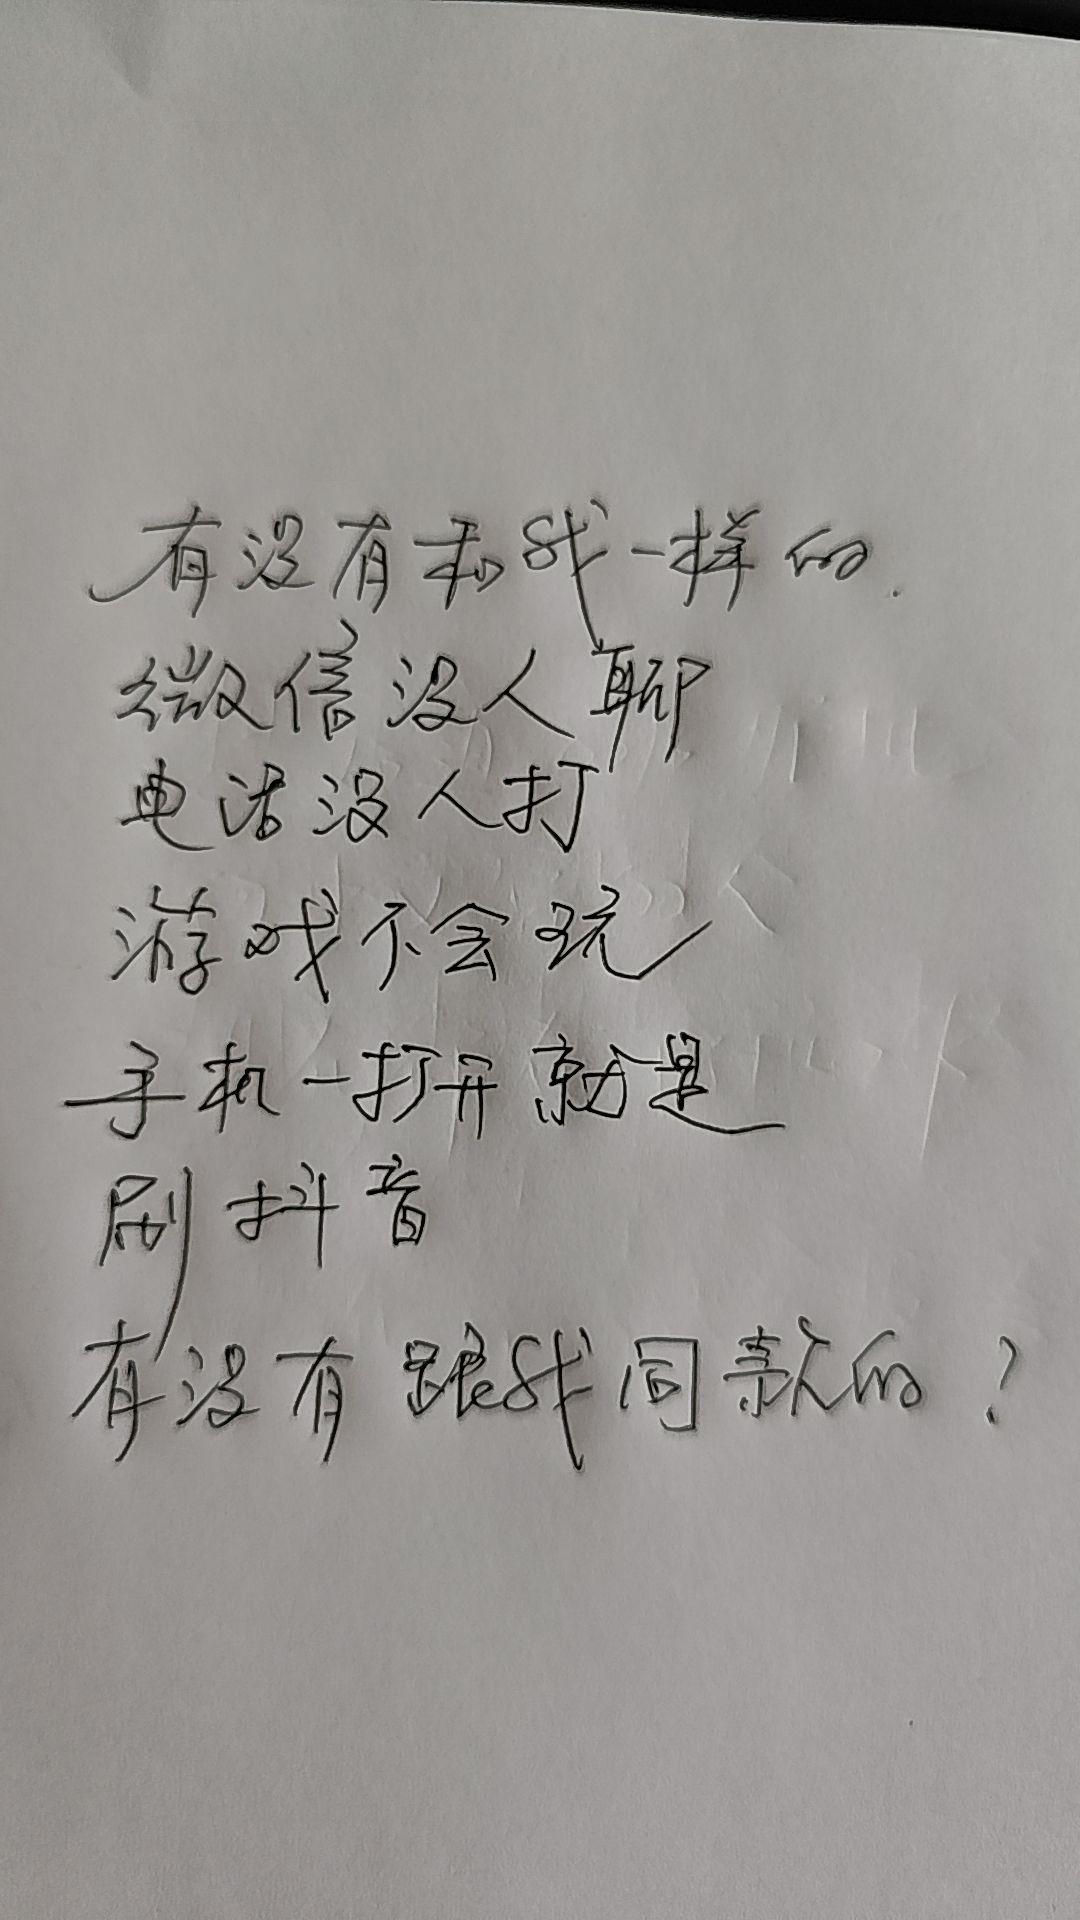 有没有和我一样的.
微信没人聊
电话没人打
游戏不会玩
手机一打开就是
刷抖音
有没有跟我同款的?